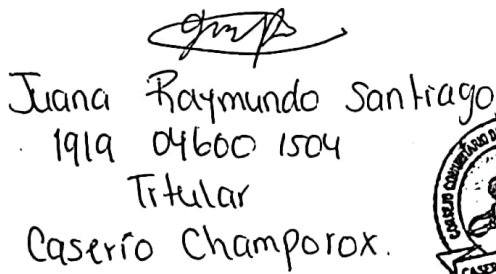 Juana Raymundo Santiago
1919 04600 1504
Titular
Caserío Champorox.
CONSEJO COMUNITARIO DE
CASER